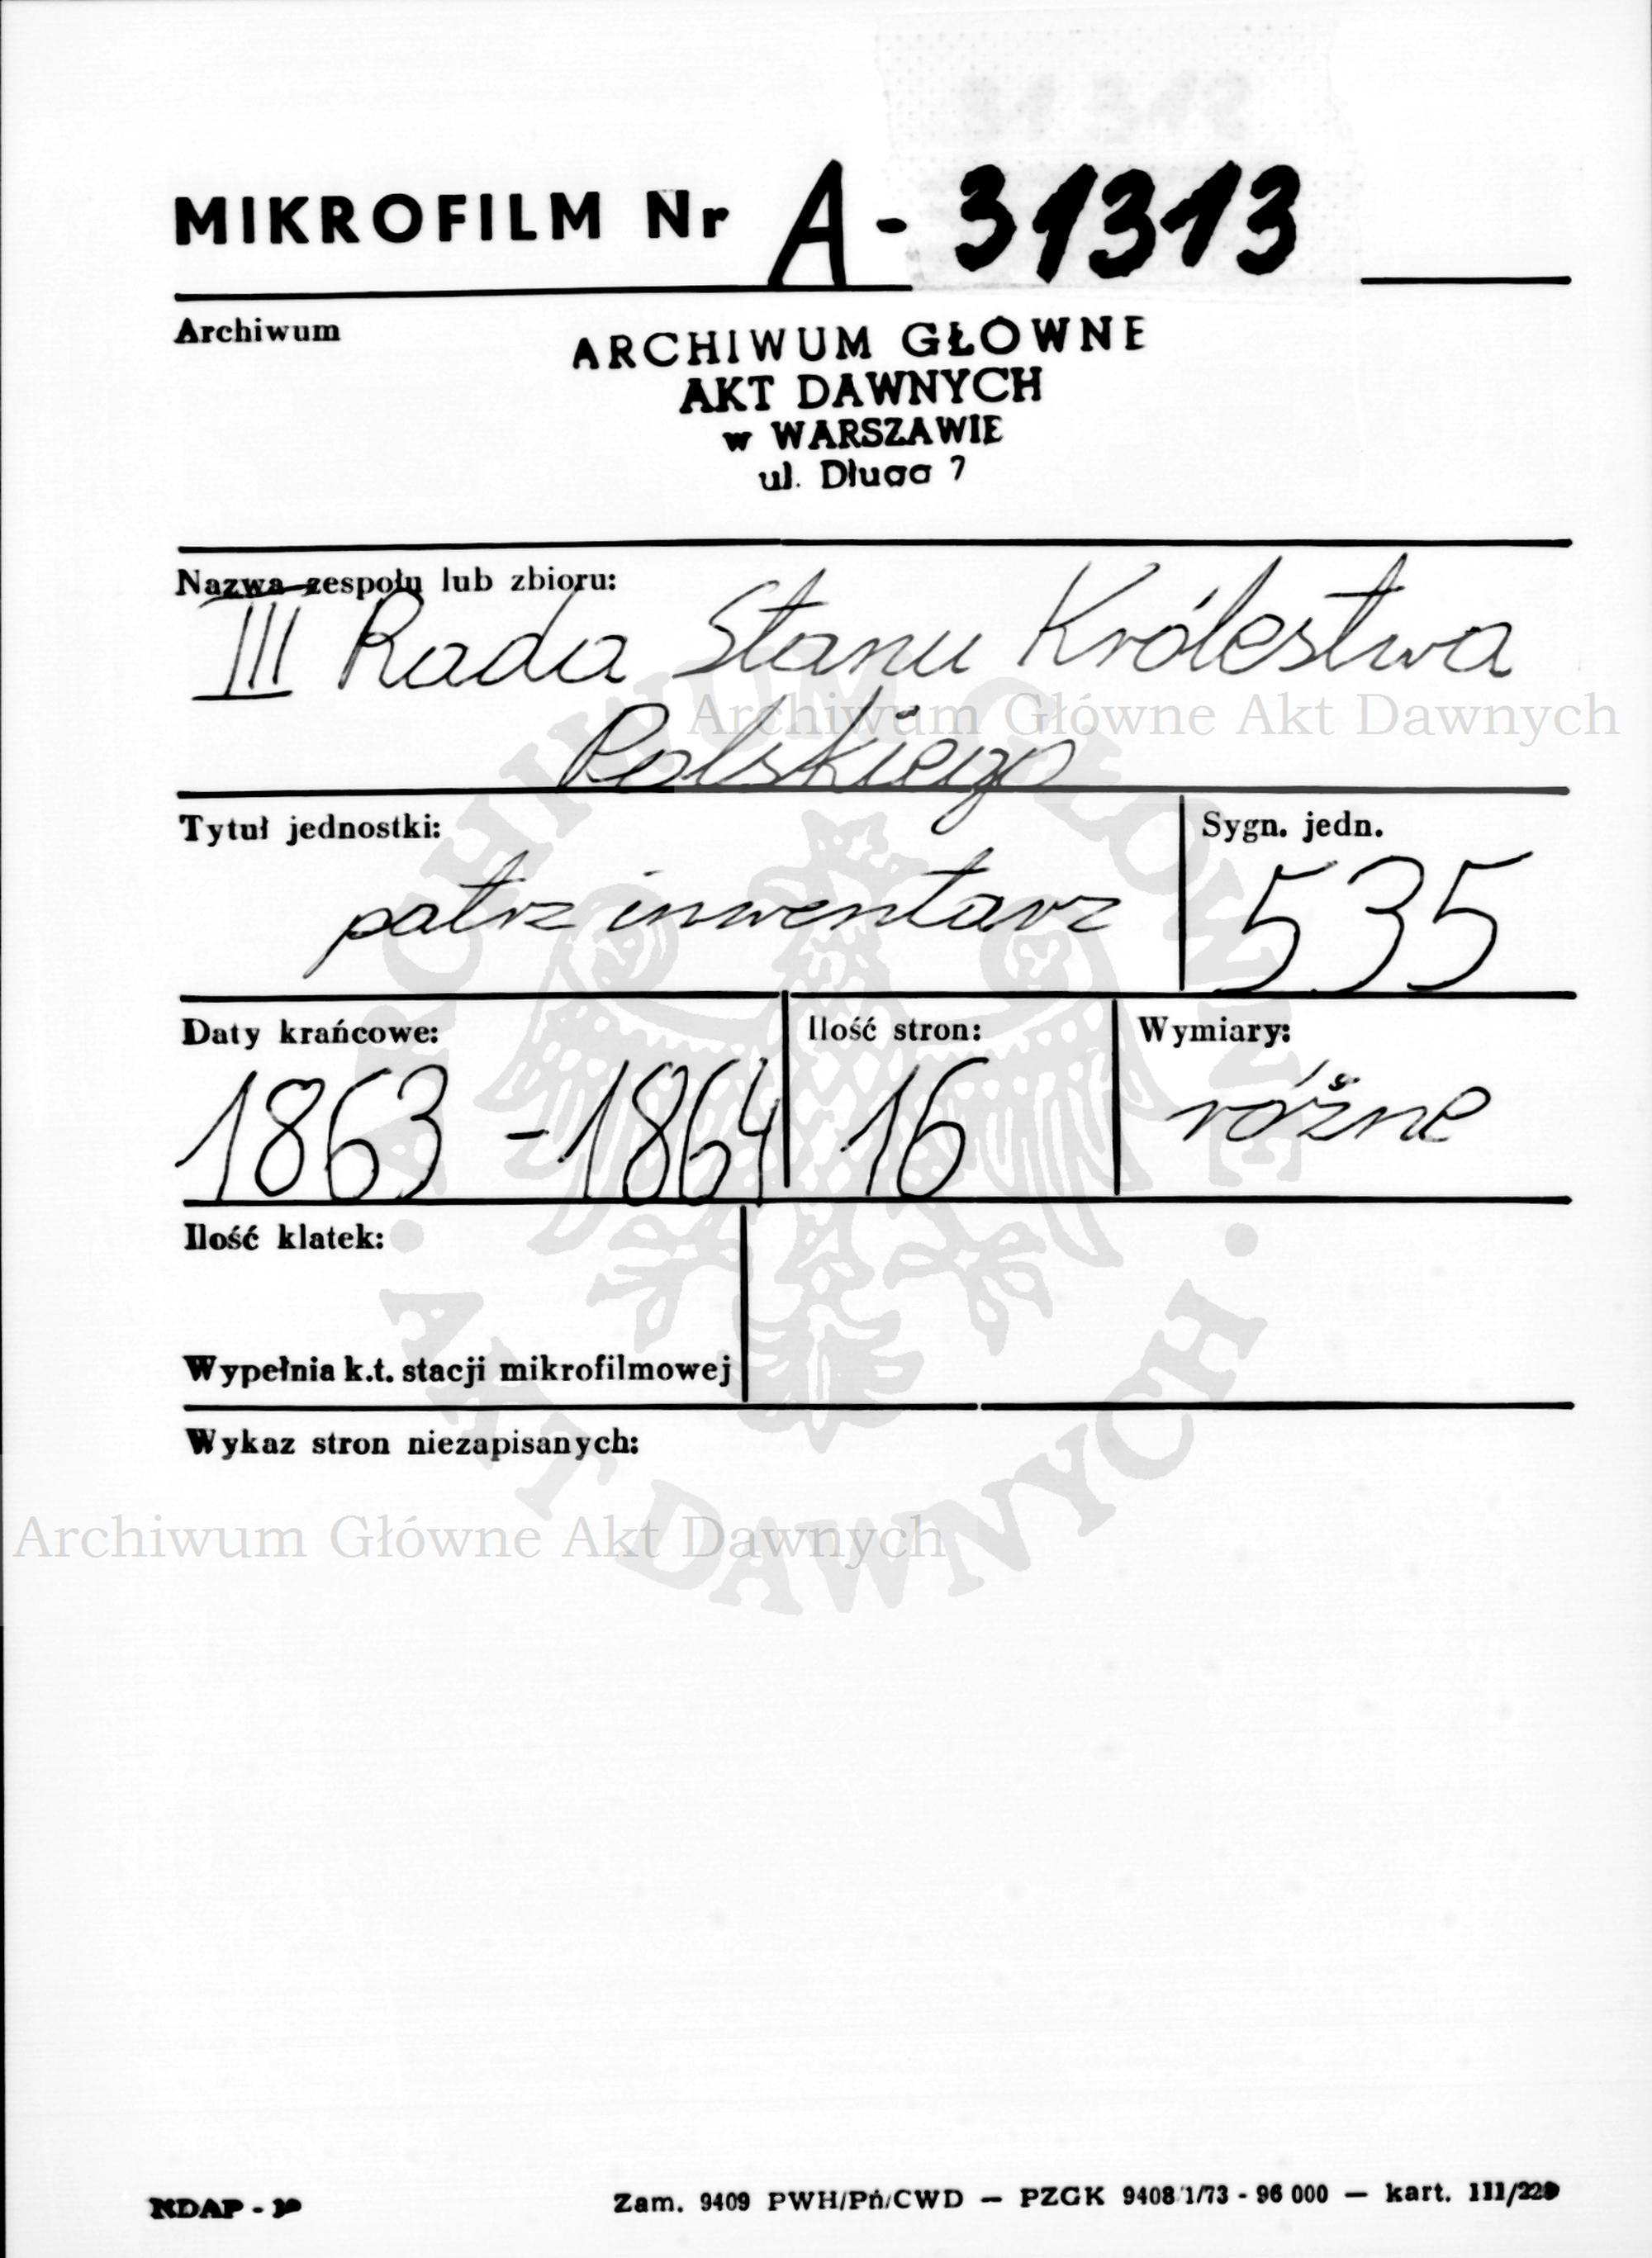 MIKROFILM Nr A - 31313
Archiwum
ARCHIWUM GŁÓWNE
AKT DAWNYCH
w WARSZAWIE
ul. Długa 7
Nazwa zespołu lub zbioru:
III Rada Stanu Królestwa
Archiwum Główne Akt Dawnych
Polskiego
Tytuł jednostki:
patrz inwentarz
Sygn. jedn.
535
Daty krańcowe:
1863 - 1864
Ilość stron:
16
Wymiary:
różne
Ilość klatek:
Wypełnia k.t. stacji mikrofilmowej
Wykaz stron niezapisanych:
Archiwum Główne Akt Dawnych
ARCHIWUM GŁÓWNE · AKT DAWNYCH ·
NDAP -
Zam. 9409 PWH/Pń/CWD — PZGK 9408/1/73 - 96 000 — kart. 111/220